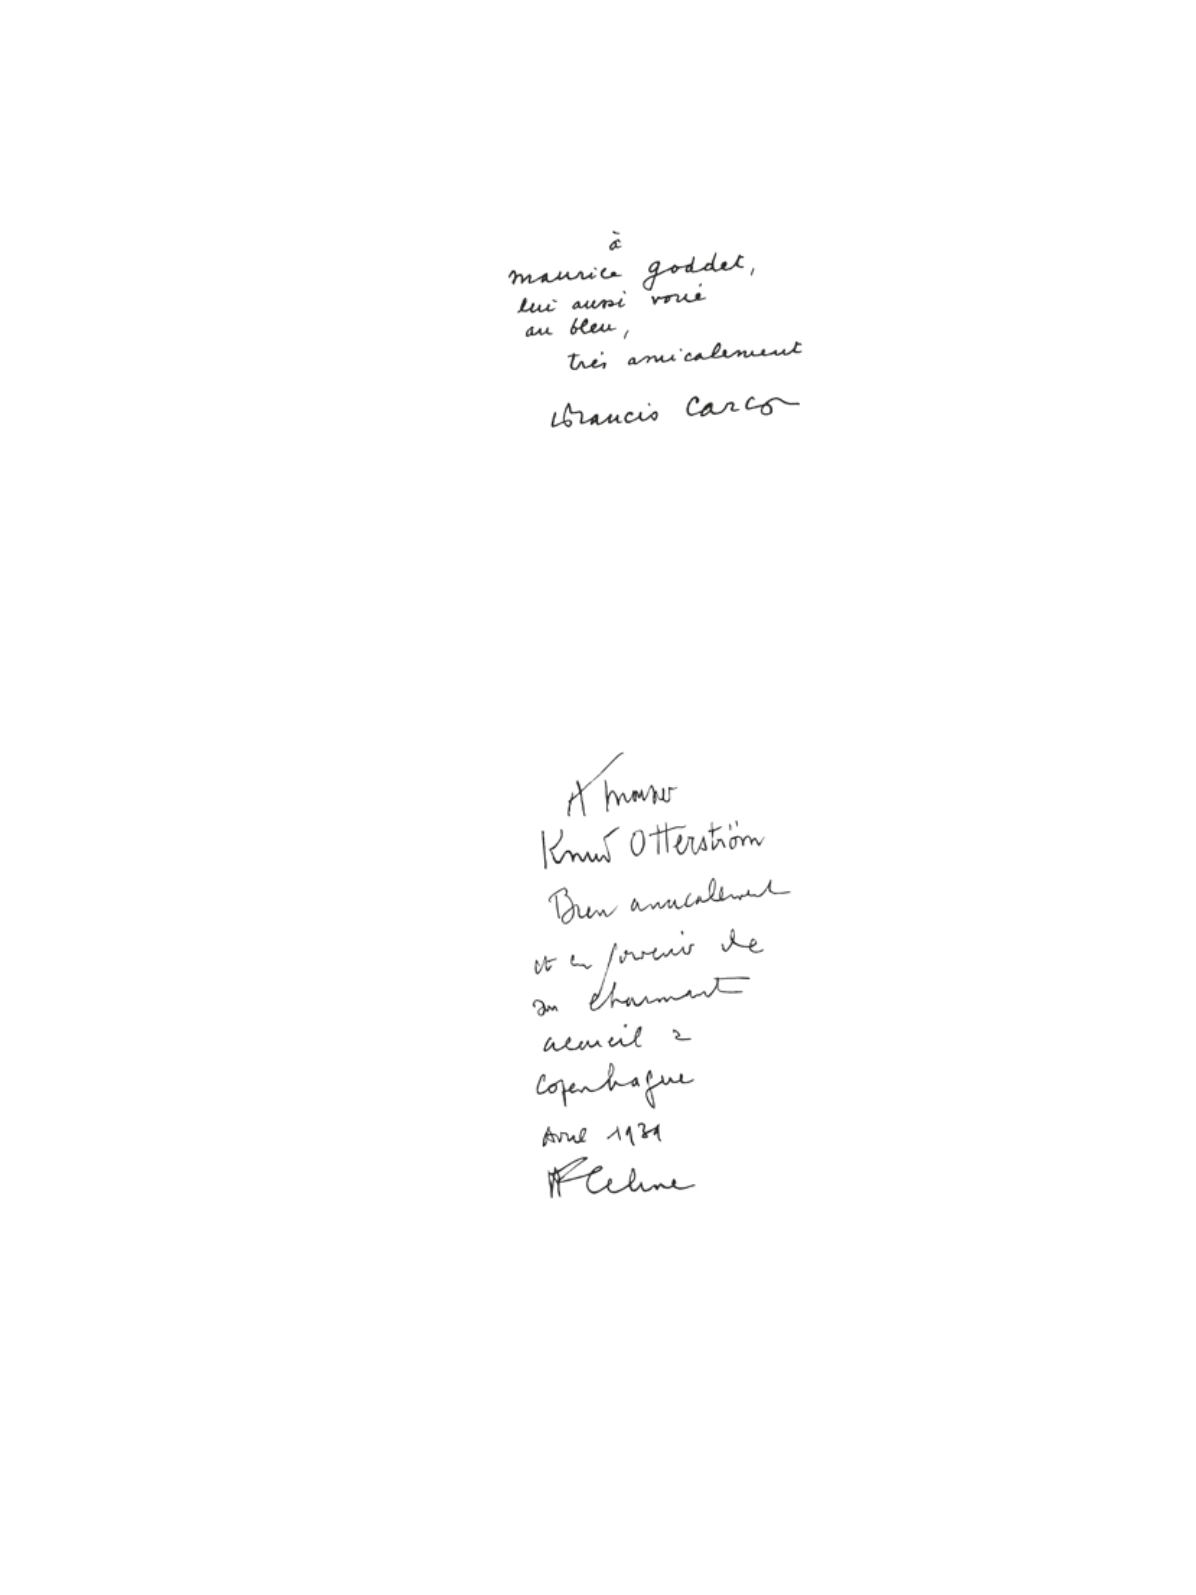 à
maurice goddet,
lui aussi voué
au bleu,
très amicalement
Francis Carco
A
Knud Otterström
Bien amicalement
et en souvenir de
son charmant
accueil à
Copenhague
Avril 1939
LF Celine